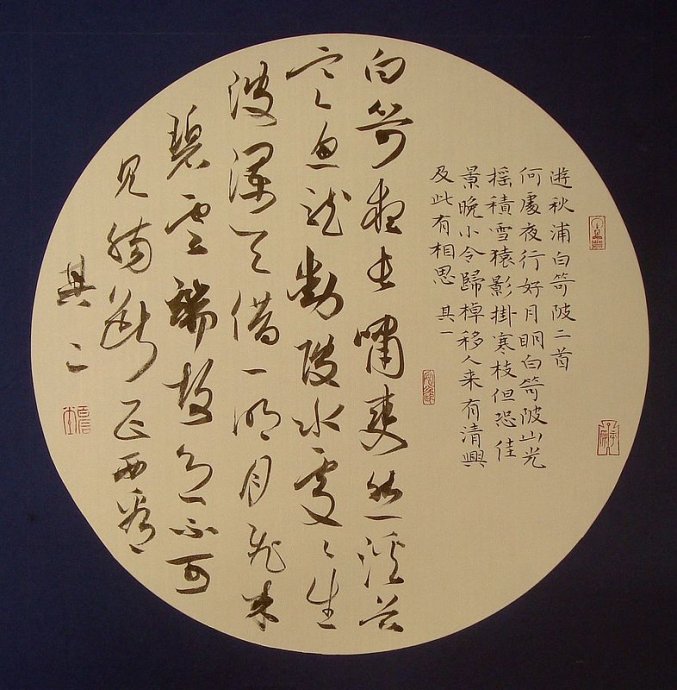 遊秋浦白笴陂二首
何處夜行好月明白笴陂山光
搖積雪猿影掛寒枝但恐佳
景晚小令歸棹移人来有清興
及此有相思 其一
白笴夜長嘯爽然溪谷
寒魚龍動陂水處々生
波瀾天借一明月飛来
碧雲端故鄉不可
見腸斷正西看
其二